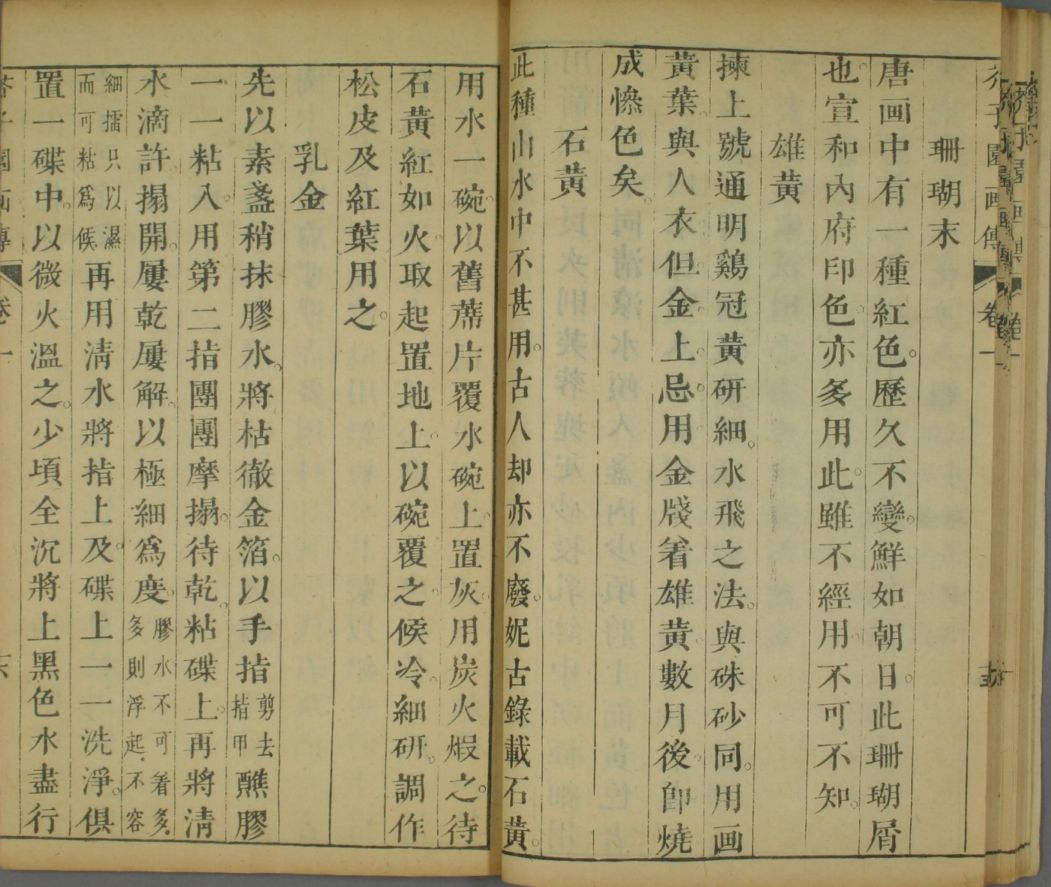 芥子園画傳 卷一
珊瑚末
唐画中有一種紅色。歷久不變。鮮如朝日。此珊瑚屑
也。宣和內府印色。亦多用此。雖不經用。不可不知。
雄黃
揀上號通明鷄冠黃研細。水飛之法。與硃砂同。用画
黃葉與人衣。但金上。忌用。金牋着雄黃數月後。卽燒
成慘色矣。
石黃
此種山水中不甚用。古人却亦不廢。妮古錄載石黃。
用水一碗。以舊蓆片覆水碗上。置灰。用炭火煆之。待
石黃紅如火。取起置地上。以碗覆之。候冷。細研。調作
松皮及紅葉用之。
乳金
先以素盞稍抹膠水。將枯徹金箔。以手指剪去指甲蘸膠
一一粘入。用第二指團團摩搨。待乾。粘碟上。再將清
水滴許搨開。屢乾屢解。以極細爲度。膠水不可着多。多則浮起。不容
細擂。只以濕而可粘爲候。再用清水將指上。及碟上一一洗淨。俱
置一碟中。以微火溫之。少頃金沉。將上黑色水盡行
芥子園画傳 卷一